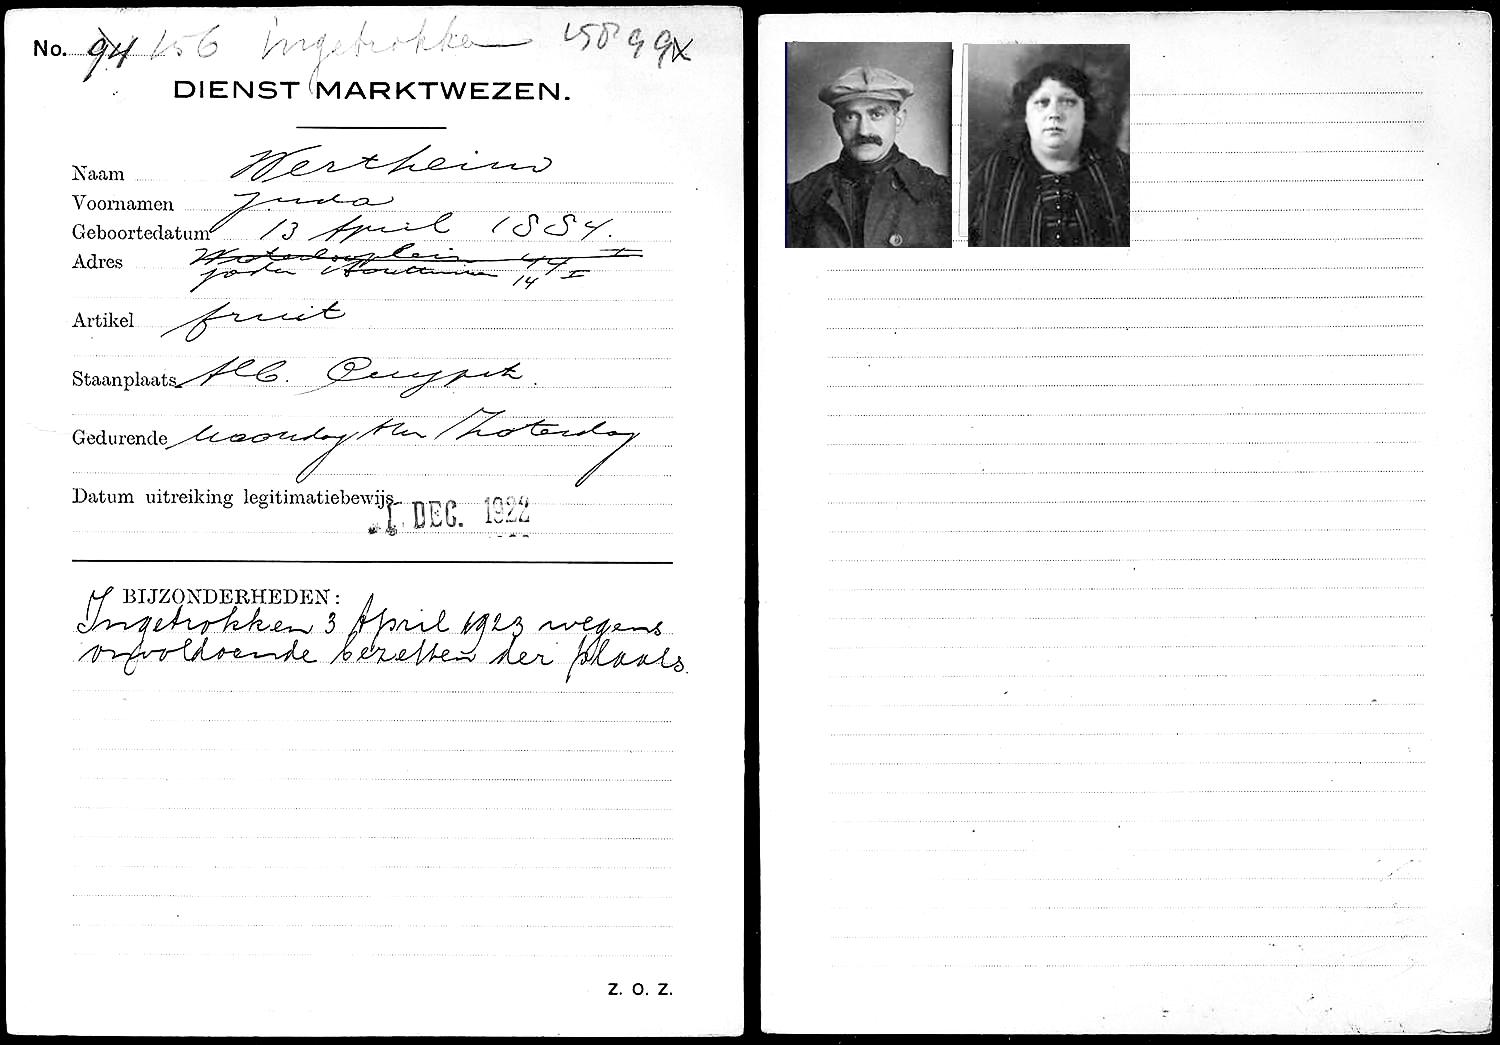 No. 94 156 Ingetrokken 158 99
DIENST MARKTWEZEN.
Naam Wertheim
Voornamen Juda
Geboortedatum 13 April 1884.
Adres Waterlooplein 44 I
Joden Houttuinen 14 I
Artikel fruit
Staanplaats Alb. Cuypstr.
Gedurende Maandag t/m Zaterdag
Datum uitreiking legitimatiebewijs 1 DEC. 1922
BIJZONDERHEDEN:
Ingetrokken 3 April 1923 wegens
onvoldoende bezetten der plaats.
Z. O. Z.